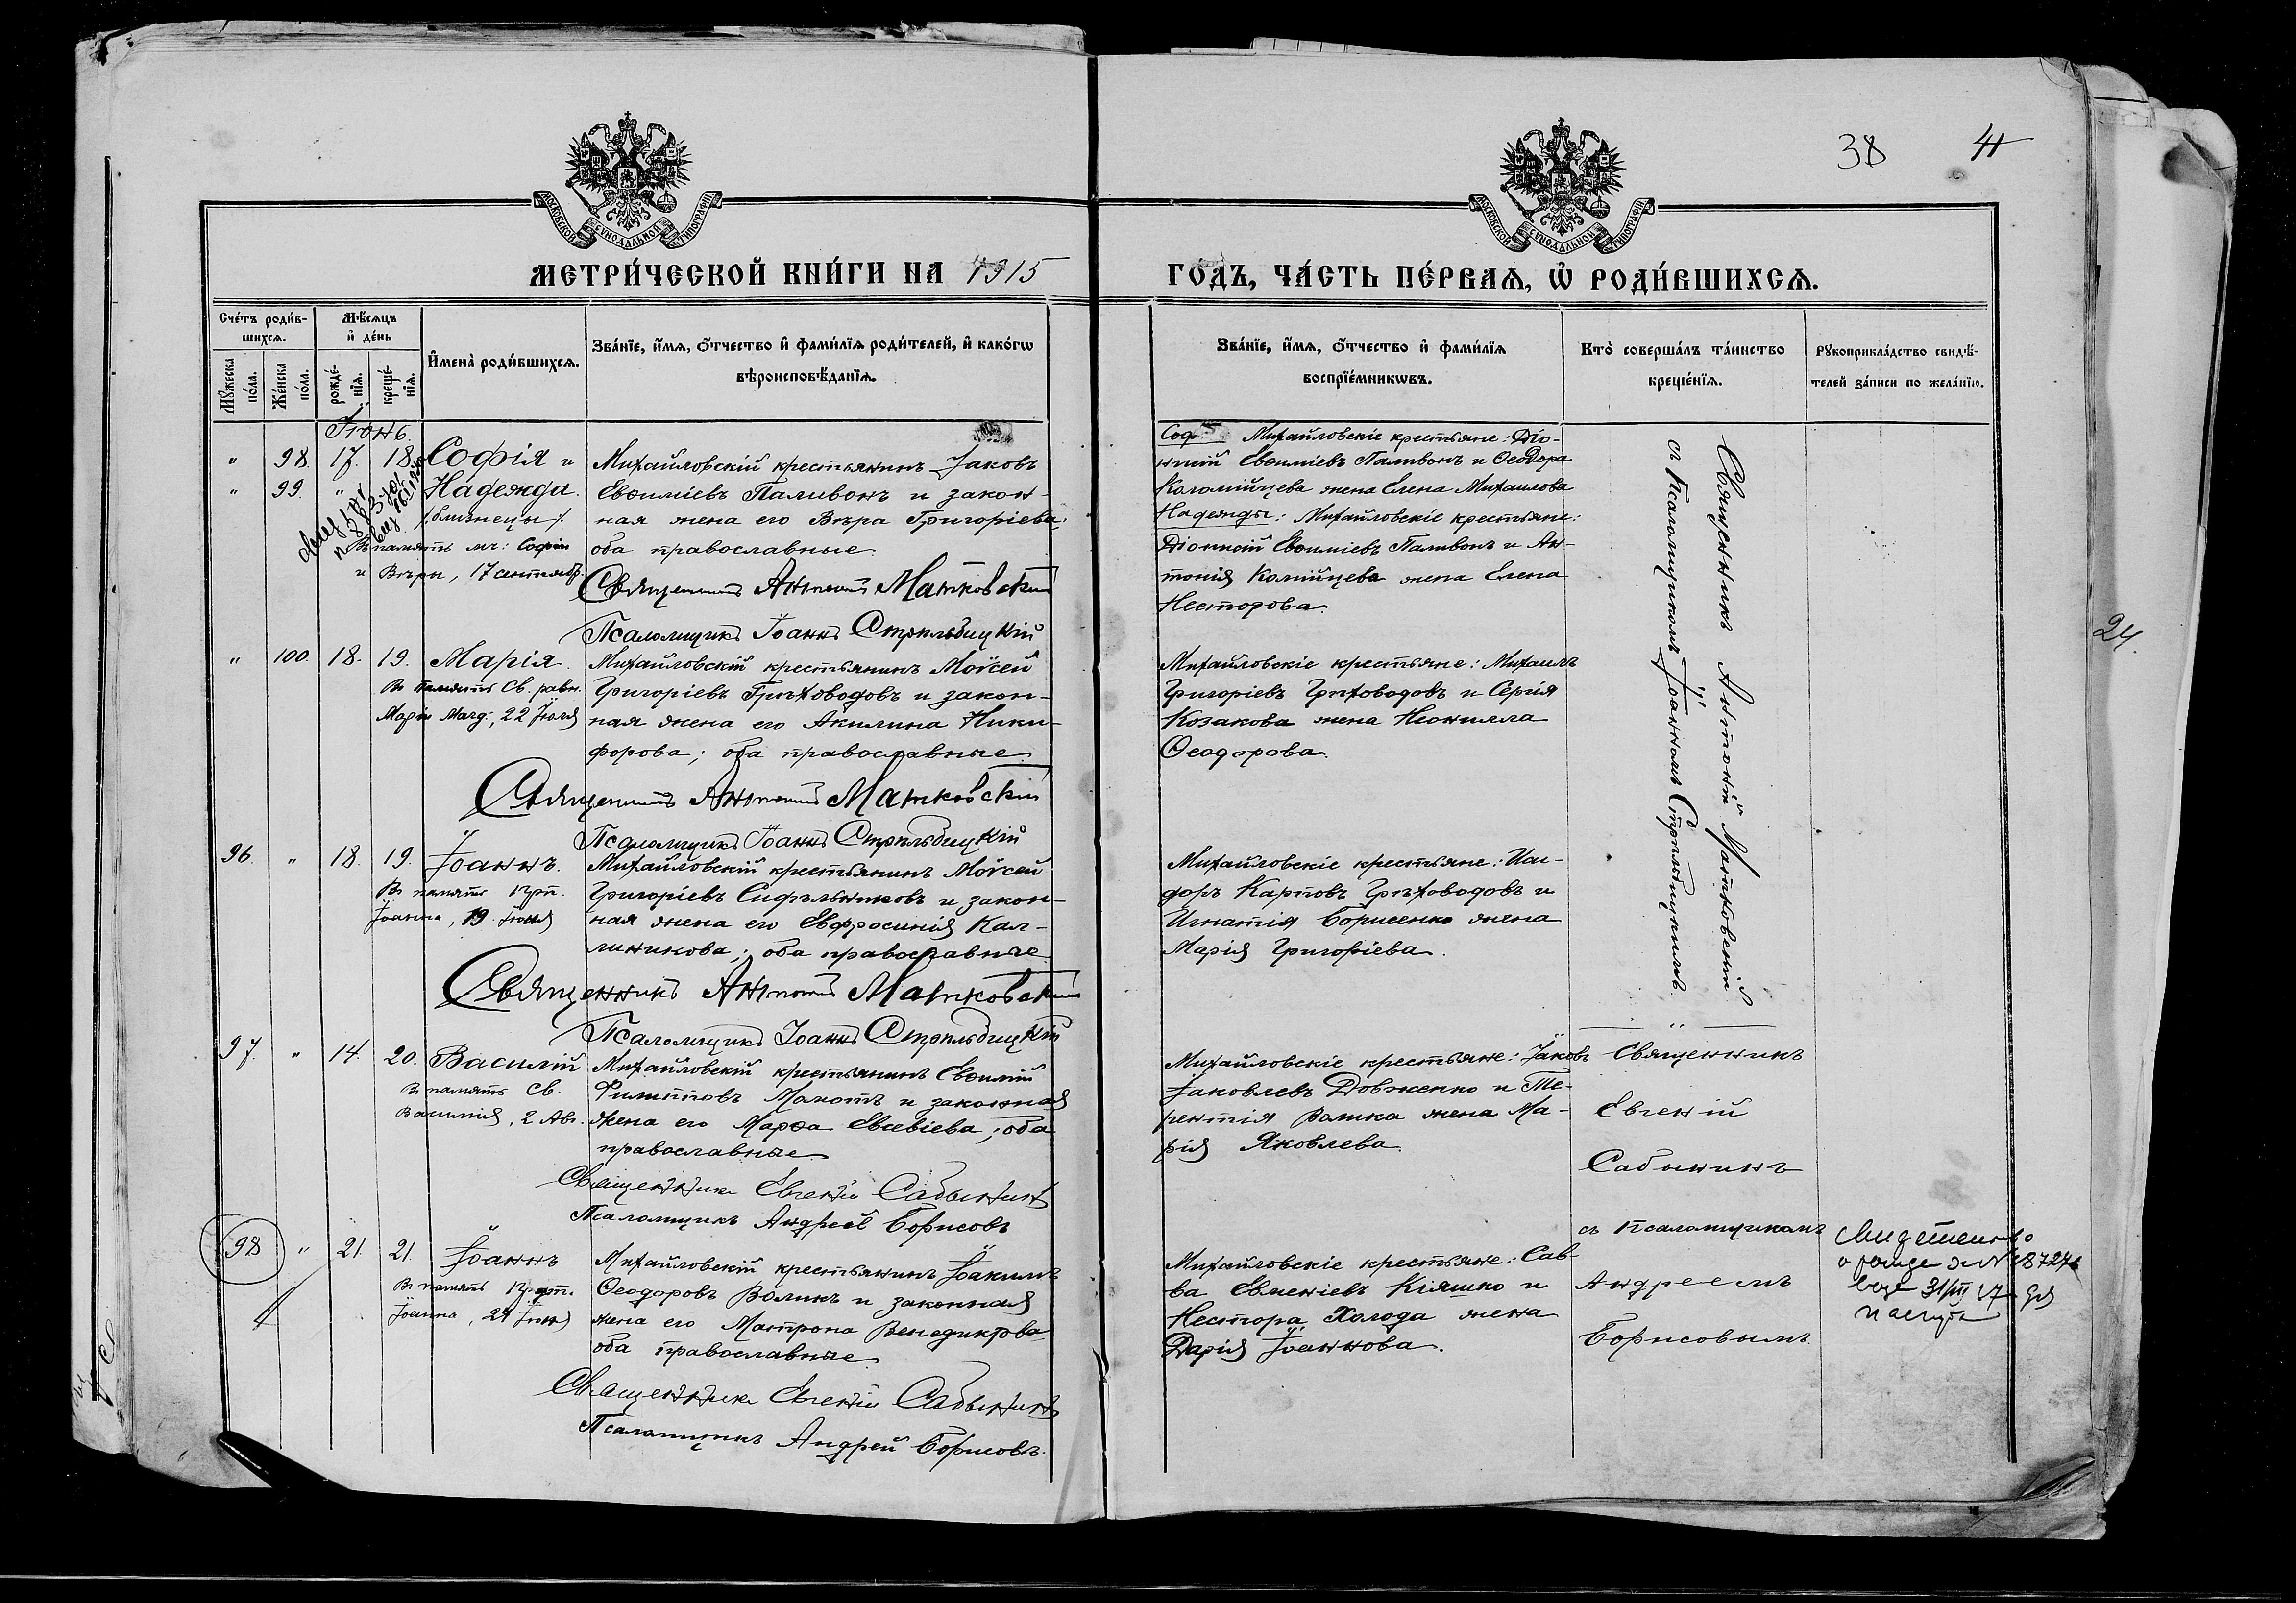 38 41
МОСКОВСКОЙ СѴНОДАЛЬНОЙ ТИПОГРАФІИ
МОСКОВСКОЙ СѴНОДАЛЬНОЙ ТИПОГРАФІИ
МЕТРИ́ЧЕСКОЙ КНИ́ГИ НА 1915
ГО́ДЪ, ЧА́СТЬ ПЕ́РВАЯ, Ѡ РОДИ́ВШИХСЯ.
Сче́тъ роди́в-
шихся.
Мꙋжеска по́ла.
Же́нска по́ла.
Мѣ́сяцъ
и де́нь
рожде́-
нїя.
креще́-
нїя.
Имена̀ роди́вшихся.
Зва́нїе, и́мя, о́тчество и фами́лїя роди́телей, и како́гѡ
вѣроисповѣ́данїя.
Зва́нїе, и́мя, о́тчество и фами́лїя
воспрїе́мникѡвъ.
Кто̀ соверша́лъ та́инство
креще́нїя.
Рꙋкоприкла́дство свидѣ́-
телей за́писи по жела́нїю.
Іюнь.
" 98. 17. 18. Софія и
" 99. " Надежда.
/близнецы/.
Въ память мч: Софіи
и Вѣры, 17 сентябр.
Михайловскій крестьянинъ Іаковъ
Евѳиміевъ Паливонъ и закон-
ная жена его Вѣра Григоріева;
оба православные.
Священникъ Антоній Матковскій
Псаломщикъ Іоаннъ Стрѣльбицкій
Соф Михайловскіе крестьяне: Діо-
нисій Евѳиміевъ Паливонъ и Ѳеодора
Коломійцева жена Елена Михаилова
Надежды: Михайловскіе крестьяне:
Діонисій Евѳиміевъ Паливонъ и Ан-
тонія Коломійцева жена Елена
Несторова.
Священникъ Антоній Матковскій
съ Псаломщикомъ Іоанномъ Стрѣльбицкимъ.
" 100. 18. 19. Марія.
Въ память Св. равн.
Маріи Магд:, 22 Іюля
Михайловскій крестьянинъ Моѵсей
Григоріевъ Грѣховодовъ и закон-
ная жена его Акилина Ники-
форова; оба православные.
Священникъ Антоній Матковскій
Псаломщикъ Іоаннъ Стрѣльбицкій
Михайловскіе крестьяне: Михаилъ
Григоріевъ Грѣховодовъ и Сергія
Козакова жена Неонилла
Ѳеодорова.
96. " 18. 19. Іоаннъ.
Въ память Крт.
Іоанна, 19 Іюня
Михайловскій крестьянинъ Моѵсей
Григоріевъ Сифильниковъ и закон-
ная жена его Евфросинія Кал-
линикова; оба православные
Священникъ Антоній Матковскій
Псаломщикъ Іоаннъ Стрѣльбицкій
Михайловскіе крестьяне: Иси-
доръ Карповъ Грѣховодовъ и
Игнатія Борисенко жена
Марія Григоріева.
97. " 14. 20. Василій
Въ память Св.
Василія, 2 Авг.
Михайловскій крестьянинъ Евѳимій
Филипповъ и законная
жена его Марѳа Евсевіева; оба
православные.
Священникъ Евгеній Сабынинъ
Псаломщикъ Андрей Борисовъ
Михайловскіе крестьяне: Іаковъ
Іаковлевъ Довженко и Те-
рентія жена Ма-
рія Яковлева.
Священникъ
Евгеній
Сабынинъ
съ Псаломщикомъ
Андреемъ
Борисовымъ.
98 " 21. 21. Іоаннъ
Въ память Крест.
Іоанна, 24 Іюня
Михайловскій крестьянинъ Іоакимъ
Ѳеодоровъ Воликъ и законная
жена его Матрона Венедиктова
оба православные.
Священникъ Евгеній Сабынинъ
Псаломщикъ Андрей Борисовъ.
Михайловскіе крестьяне: Сав-
ва Евменіевъ Кіяшко и
Нестора Холода жена
Дарія Іоаннова.
24.